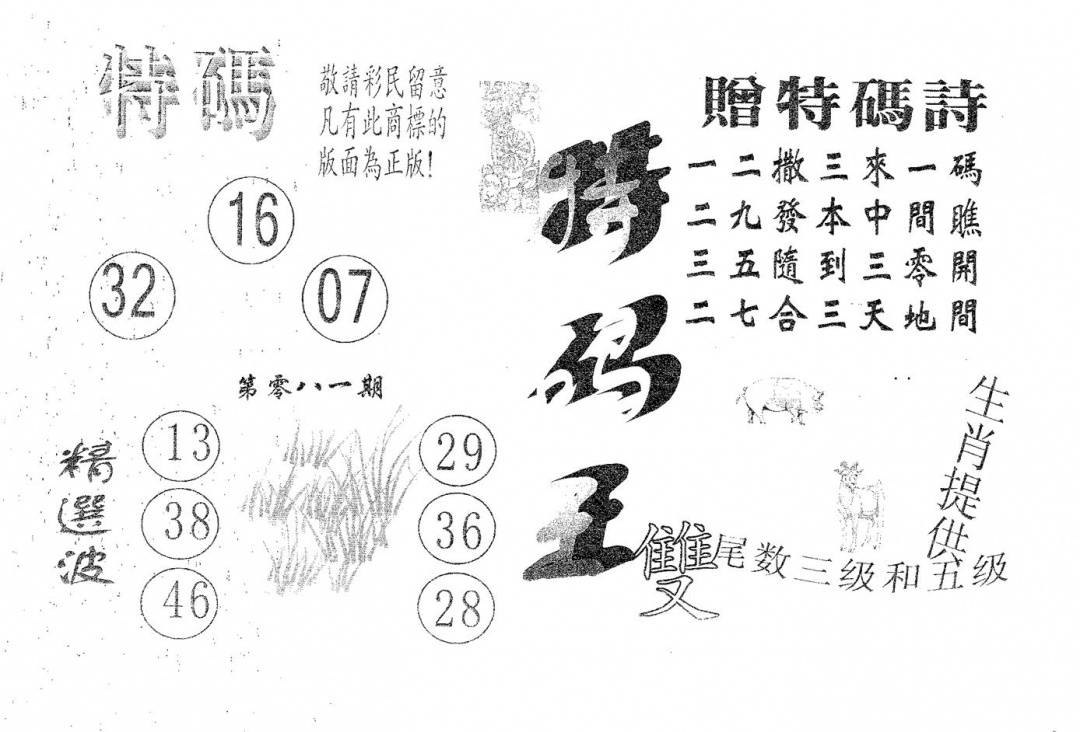 特碼
敬請彩民留意
凡有此商標的
版面為正版!
16
32
07
第零八一期
精選波
13
38
46
29
36
28
特码王
贈特碼詩
一二撒三來一碼
二九發本中間瞧
三五隨到三零開
二七合三天地間
生肖提供
雙
尾数三级和五级